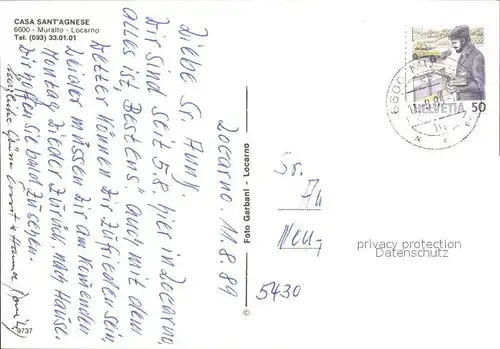 CASA SANT'AGNESE
6600 - Muralto - Locarno
Tel. (093) 33.01.01
Locarno. 11.8.89
Liebe Fr. Huny.
Wir sind seit 5.8. hier in Locarno,
alles ist „Bestens“ auch mit dem
Wetter können wir zufrieden sein,
Leider müssen wir am kommenden
Montag wieder zurück nach Hause.
Wir hoffen sie bald zu sehen.
Herzliche Grüsse Ernst + Hanna
9737
© Foto Garbani - Locarno
Fr.
5430
HELVETIA 50
6600
privacy protection
Datenschutz